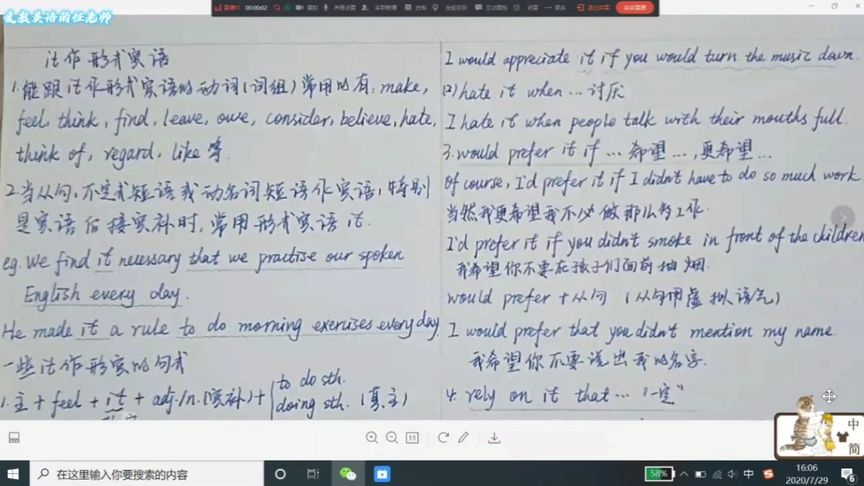 爱教英语的任老师
直播中 00:00:02
结束直播
it作形式宾语
1.能跟it作形式宾语的动词(词组)常用的有: make,
feel, think, find, leave, owe, consider, believe, hate,
think of, regard, like 等.
2.当从句,不定式短语或动名词短语作宾语,特别
是宾语后接宾补时,常用形式宾语it.
eg. We find it necessary that we practise our spoken
English every day.
He made it a rule to do morning exercises every day.
一些it作形宾的句式
1.主+feel+it+adj./n.(宾补)+
to do sth.
doing sth. (真主)
I would appreciate it if you would turn the music down.
(2)hate it when … 讨厌
I hate it when people talk with their mouths full.
3.would prefer it if … 希望…,更希望…
Of course, I'd prefer it if I didn't have to do so much work.
当然我更希望我不必做那么多工作.
I'd prefer it if you didn't smoke in front of the children
我希望你不要在孩子们面前抽烟.
would prefer+从句 (从句用虚拟语气)
I would prefer that you didn't mention my name.
我希望你不要说出我的名字.
4. rely on it that … "一定"
中
简
在这里输入你要搜索的内容
58%
中
16:06
2020/7/29
6